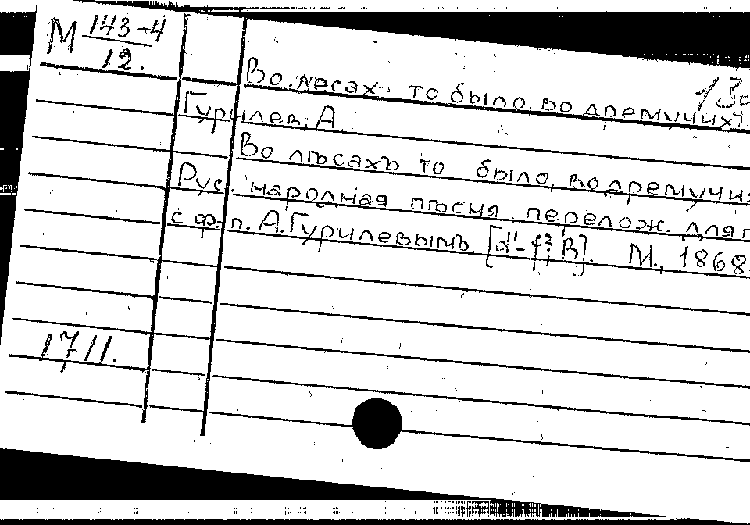 М 143-4
12.
Во лесах то было во дремучих
Гурилев, А.
Во лѣсахъ то было, во дремучи
Рус. народная пѣсня, перелож. для
с ф.-п. А. Гурилевымъ М., 1868.
1711.